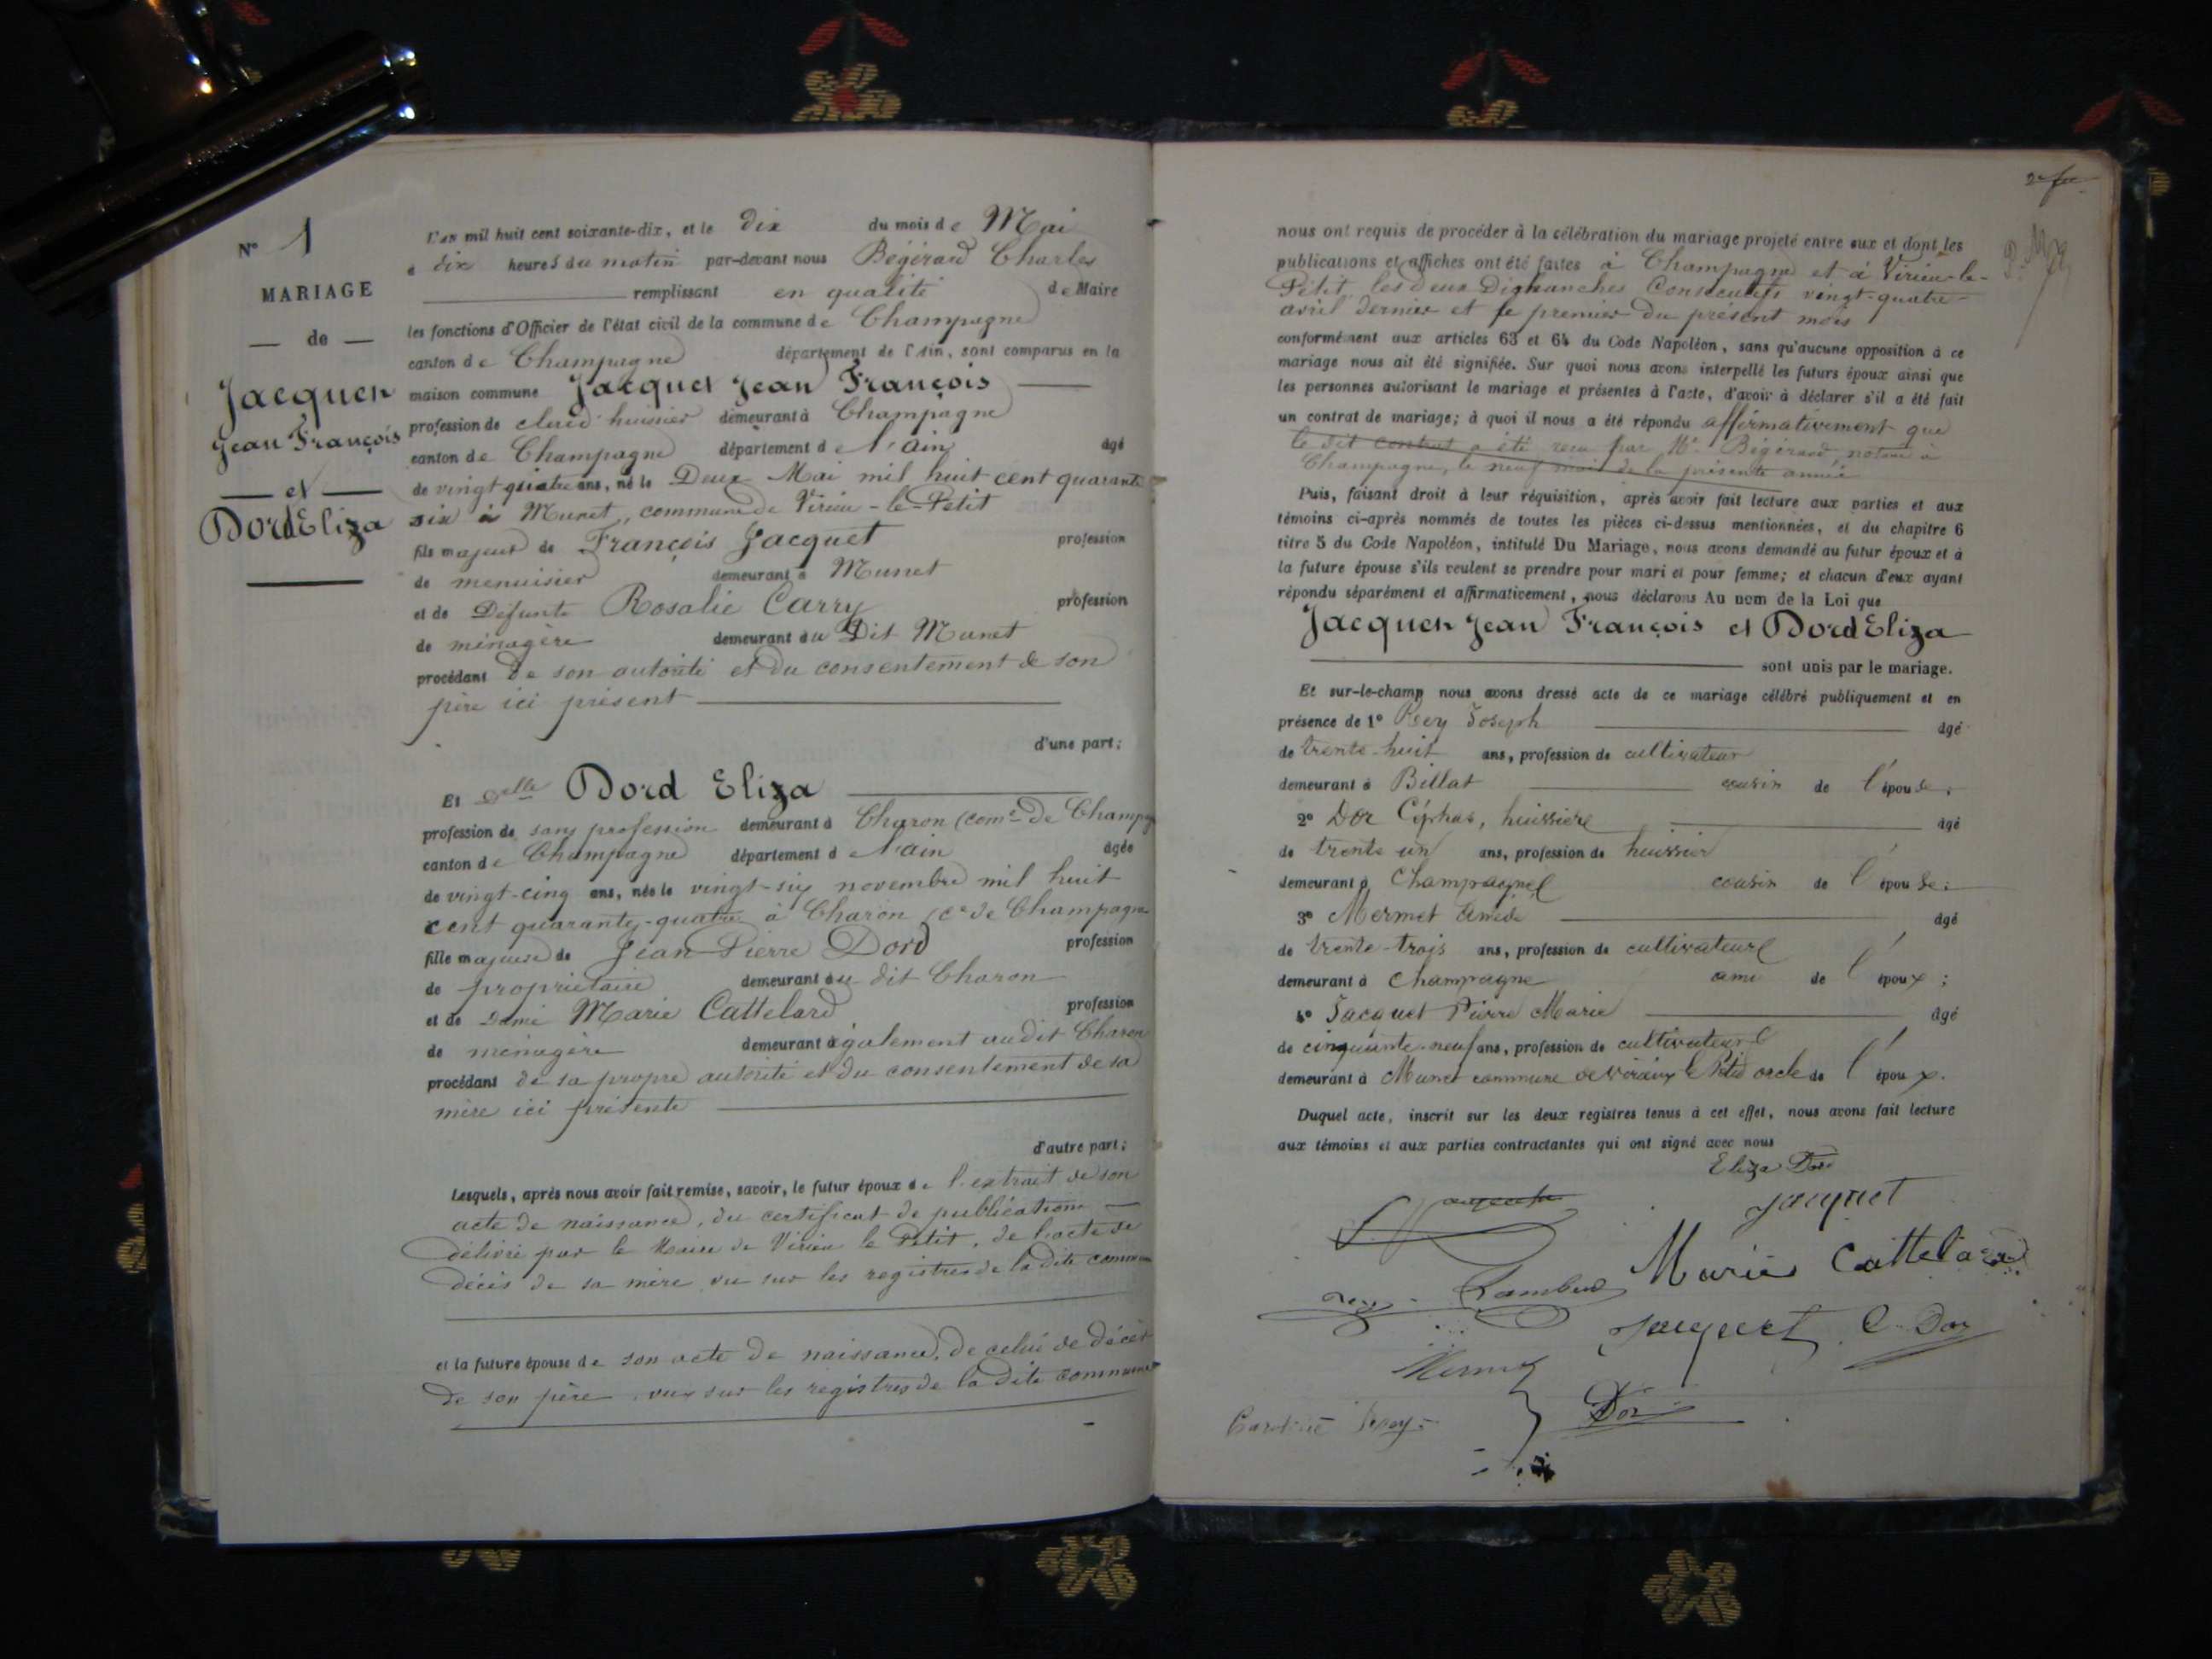 N° 1
MARIAGE
de
Jacquet
Jean François
et
Dord Eliza
L'an mil huit cent soixante-dix, et le dix du mois de Mai
à dix heures du matin par-devant nous Bégérard Charles
remplissant en qualité de Maire
les fonctions d'Officier de l'état civil de la commune de Champagne
canton de Champagne département de l'Ain, sont comparus en la
maison commune Jacquet Jean François
profession de clerc d'huissier demeurant à Champagne
canton de Champagne département de l'ain âgé
de vingt quatre ans, né le Deux Mai mil huit cent quarante
six à Munet, commune de Virieu-le-Petit
fils majeur de François Jacquet profession
de menuisier demeurant à Munet
et de Défunte Rosalie Carry profession
de ménagère demeurant au Dit Munet
procédant de son autorité et du consentement de son
père ici présent
d'une part;
Et Delle Dord Eliza
profession de sans profession demeurant à Charon (come de Champag
canton de Champagne département de l'ain âgée
de vingt-cinq ans, née le vingt-six novembre mil huit
cent quarante-quatre à Charon, ce de Champagne
fille majeure de Jean Pierre Dord profession
de propriétaire demeurant au dit Charon
et de Dame Marie Cattelard profession
de ménagère demeurant également audit Charon
procédant de sa propre autorité et du consentement de sa
mère ici présente
d'autre part;
Lesquels, après nous avoir fait remise, savoir, le futur époux de l'extrait de son
acte de naissance, du certificat de publications
délivré par le Maire de Virieu le Petit, de l'acte de
décès de sa mère vu sur les registres de la dite commune
et la future épouse de son acte de naissance, de celui de décès
de son père, vus sur les registres de la dite commune
2e
nous ont requis de procéder à la célébration du mariage projeté entre eux et dont les
publications et affiches ont été faites à Champagne et à Virieu-le-
Petit, les deux Dimanches Consécutifs vingt-quatre
avril dernier et le premier du présent mois
conformément aux articles 63 et 64 du Code Napoléon, sans qu'aucune opposition à ce
mariage nous ait été signifiée. Sur quoi nous avons interpellé les futurs époux ainsi que
les personnes autorisant le mariage et présentes à l'acte, d'avoir à déclarer s'il a été fait
un contrat de mariage; à quoi il nous a été répondu affirmativement que
le dit contrat a été reçu par Me Bégérard, notaire à
Champagne, le neuf mai de la présente année
Puis, faisant droit à leur réquisition, après avoir fait lecture aux parties et aux
témoins ci-après nommés de toutes les pièces ci-dessus mentionnées, et du chapitre 6
titre 5 du Code Napoléon, intitulé Du Mariage, nous avons demandé au futur époux et à
la future épouse s'ils veulent se prendre pour mari et pour femme; et chacun d'eux ayant
répondu séparément et affirmativement, nous déclarons Au nom de la Loi que
Jacquet Jean François et Dord Eliza
sont unis par le mariage.
Et sur-le-champ nous avons dressé acte de ce mariage célébré publiquement et en
présence de 1° Rey Joseph âgé
de trente-huit ans, profession de cultivateur
demeurant à Billat cousin de l'épouse;
2° Dor Céphas, huissier âgé
de trente un ans, profession de huissier
demeurant à Champagne cousin de l'épouse;
3° Mermet Amédé âgé
de trente-trois ans, profession de cultivateur
demeurant à Champagne ami de l'époux;
4° Jacquet Pierre Marie âgé
de cinquante-neuf ans, profession de cultivateur
demeurant à Munet commune de Virieux le Petit oncle de l'époux.
Duquel acte, inscrit sur les deux registres tenus à cet effet, nous avons fait lecture
aux témoins et aux parties contractantes qui ont signé avec nous
Eliza Dord
Jacquet
Marie Cattelard
Rey
Jacquet C. Dor
Mermet
Dor